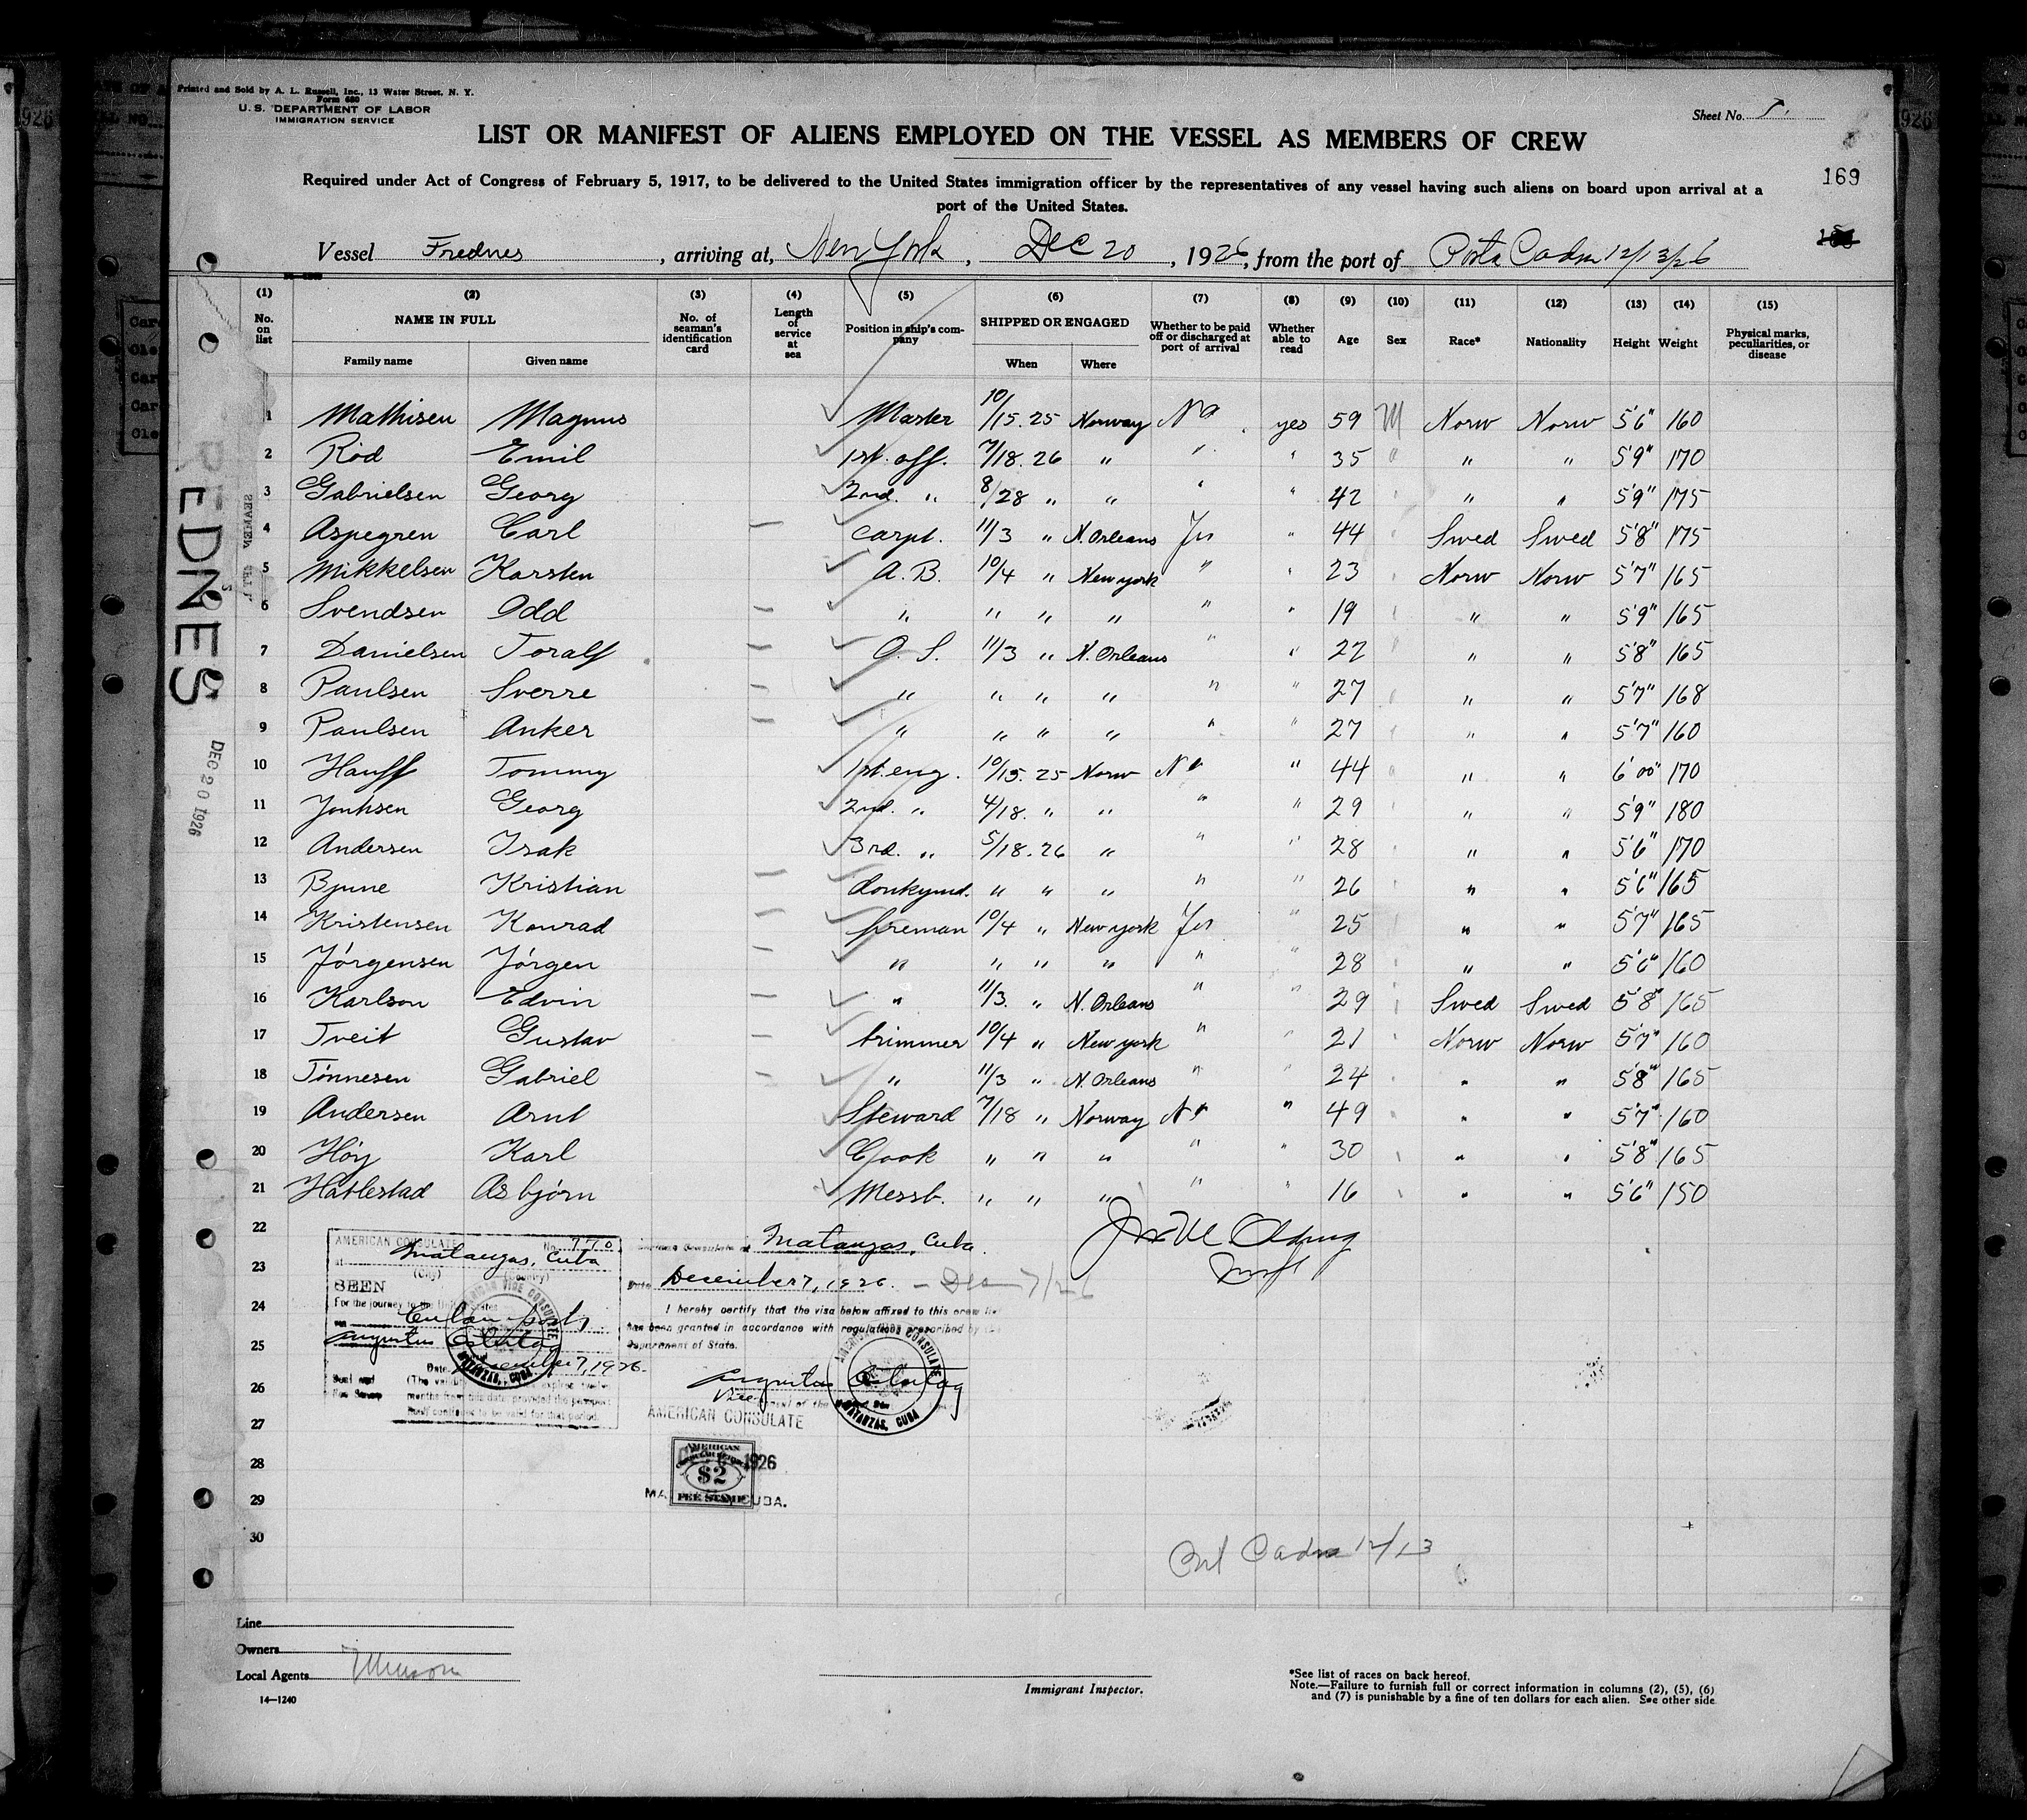 Printed and Sold by A. L. Russell, Inc., 13 Water Street, N. Y.
Form 680
U. S. DEPARTMENT OF LABOR
IMMIGRATION SERVICE
Sheet No.
LIST OR MANIFEST OF ALIENS EMPLOYED ON THE VESSEL AS MEMBERS OF CREW
169
Required under Act of Congress of February 5, 1917, to be delivered to the United States immigration officer by the representatives of any vessel having such aliens on board upon arrival at a
port of the United States.
Vessel Frednes, arriving at, New York, Dec 20, 1926, from the port of Porta Cadm 12/13/26
(1) (2) (3) (4) (5) (6) (7) (8) (9) (10) (11) (12) (13) (14) (15)
No. on list NAME IN FULL No. of seaman's identification card Length of service at sea Position in ship's company SHIPPED OR ENGAGED Whether to be paid off or discharged at port of arrival Whether able to read Age Sex Race* Nationality Height Weight Physical marks, peculiarities, or disease
Family name Given name When Where
1 Mathisen Magnus Master 10/15.25 Norway No yes 59 M Norw Norw 5'6" 160
2 Röd Emil 1st. off. 7/18.26 " " " 35 " " " 5'9" 170
3 Gabrielsen Georg 2nd. " 8/28 " " " " 42 " " 5'9" 175
4 Aspegren Carl — carpt. 11/3 " N. Orleans Yes " 44 Swed Swed 5'8" 175
5 Mikkelsen Karsten A. B. 10/4 " New york " " 23 Norw Norw 5'7" 165
6 Svendsen Odd — " " " " " " 19 " " 5'9" 165
7 Danielsen Toralf — O. S. 11/3 " N. Orleans " " 22 " " 5'8" 165
8 Paulsen Sverre — " " " " " " 27 " " 5'7" 168
9 Paulsen Anker — " " " " " " 27 " " 5'7" 160
10 Hauff Tommy 1st. eng. 10/15.25 Norw No " 44 " " 6'00" 170
11 Yonhsen Georg 2nd. " 4/18. " " " " 29 " " 5'9" 180
12 Andersen Isak 3rd. " 5/18.26 " " " 28 " " 5'6" 170
13 Bjune Kristian — donkymd. " " " " " 26 " " 5'6" 165
14 Kristensen Konrad — fireman 10/4 " New york Yes " 25 " " 5'7" 165
15 Jörgensen Jörgen — " " " " " " 28 " " 5'6" 160
16 Karlson Edvin — " 11/3. " N. Orleans " " 29 Swed Swed 5'8" 165
17 Tveit Gustav — trimmer 10/4 " New york " " 21 Norw Norw 5'7" 160
18 Tönnesen Gabriel — " 11/3 " N. Orleans " " 24 " " 5'8" 165
19 Andersen Arnt Steward 7/18 " Norway No " 49 " " 5'7" 160
20 Höy Karl Cook " " " " " 30 " " 5'8" 165
21 Hatlestad Asbjörn Messb. " " " " " 16 " " 5'6" 150
22
23
24
25
26
27
28
29
30
FREDNES
DEC 20 1926
AMERICAN CONSULATE No. 770
at Matanzas, Cuba
(City) (Country)
SEEN
For the journey to the United States
Cuban ports
Augustus Ostertag
Date December 7, 1926.
MATANZAS, CUBA
American Consulate at Matanzas, Cuba.
Date December 7, 1926. — Dec 7/26
I hereby certify that the visa below affixed to this crew list
has been granted in accordance with regulations prescribed by the
Department of State.
Augustus Ostertag
Vice
AMERICAN CONSULATE
MATANZAS, CUBA
AMERICAN
$2
FEE STAMP
1926
CUBA.
Cadm 12/13
Line
Owners
Local Agents Munson
14—1240
Immigrant Inspector.
*See list of races on back hereof.
Note.—Failure to furnish full or correct information in columns (2), (5), (6)
and (7) is punishable by a fine of ten dollars for each alien. See other side